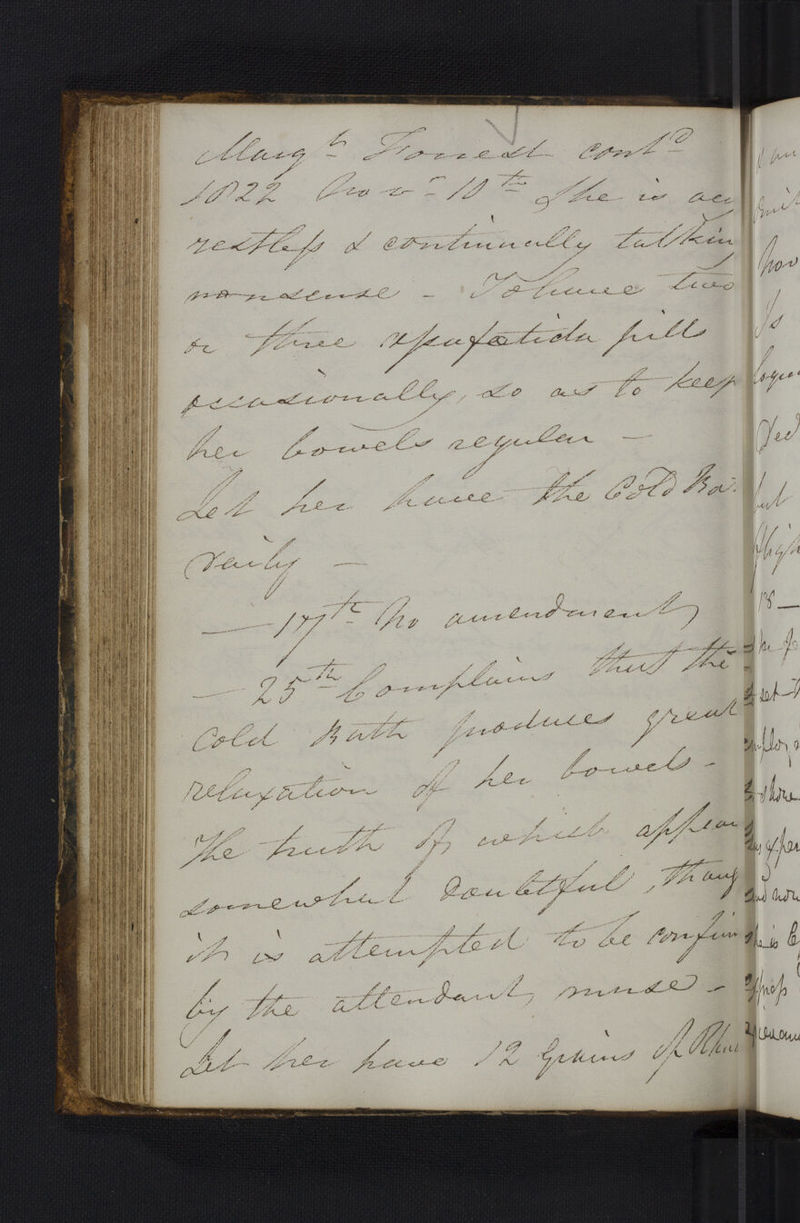 Margt Forrest contd
1822 Novr 10th She is
restless & continually talkin
nonsense - To have two
or three assafœtida pills
occasionally, so as to keep
her bowels regular -
Let her have the Cold Ba
daily -
- 17th No amendment
- 25th Complains that the
Cold Bath produces great
relaxation of her bowels -
The truth of which appear
somewhat doubtful, thoug
it is attempted to be confirm
by the attendant nurse -
Let her have 12 Grains of Rhu